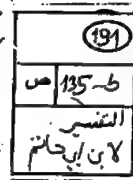 191
ص 135-ط
التفسير
لابن أبي حاتم